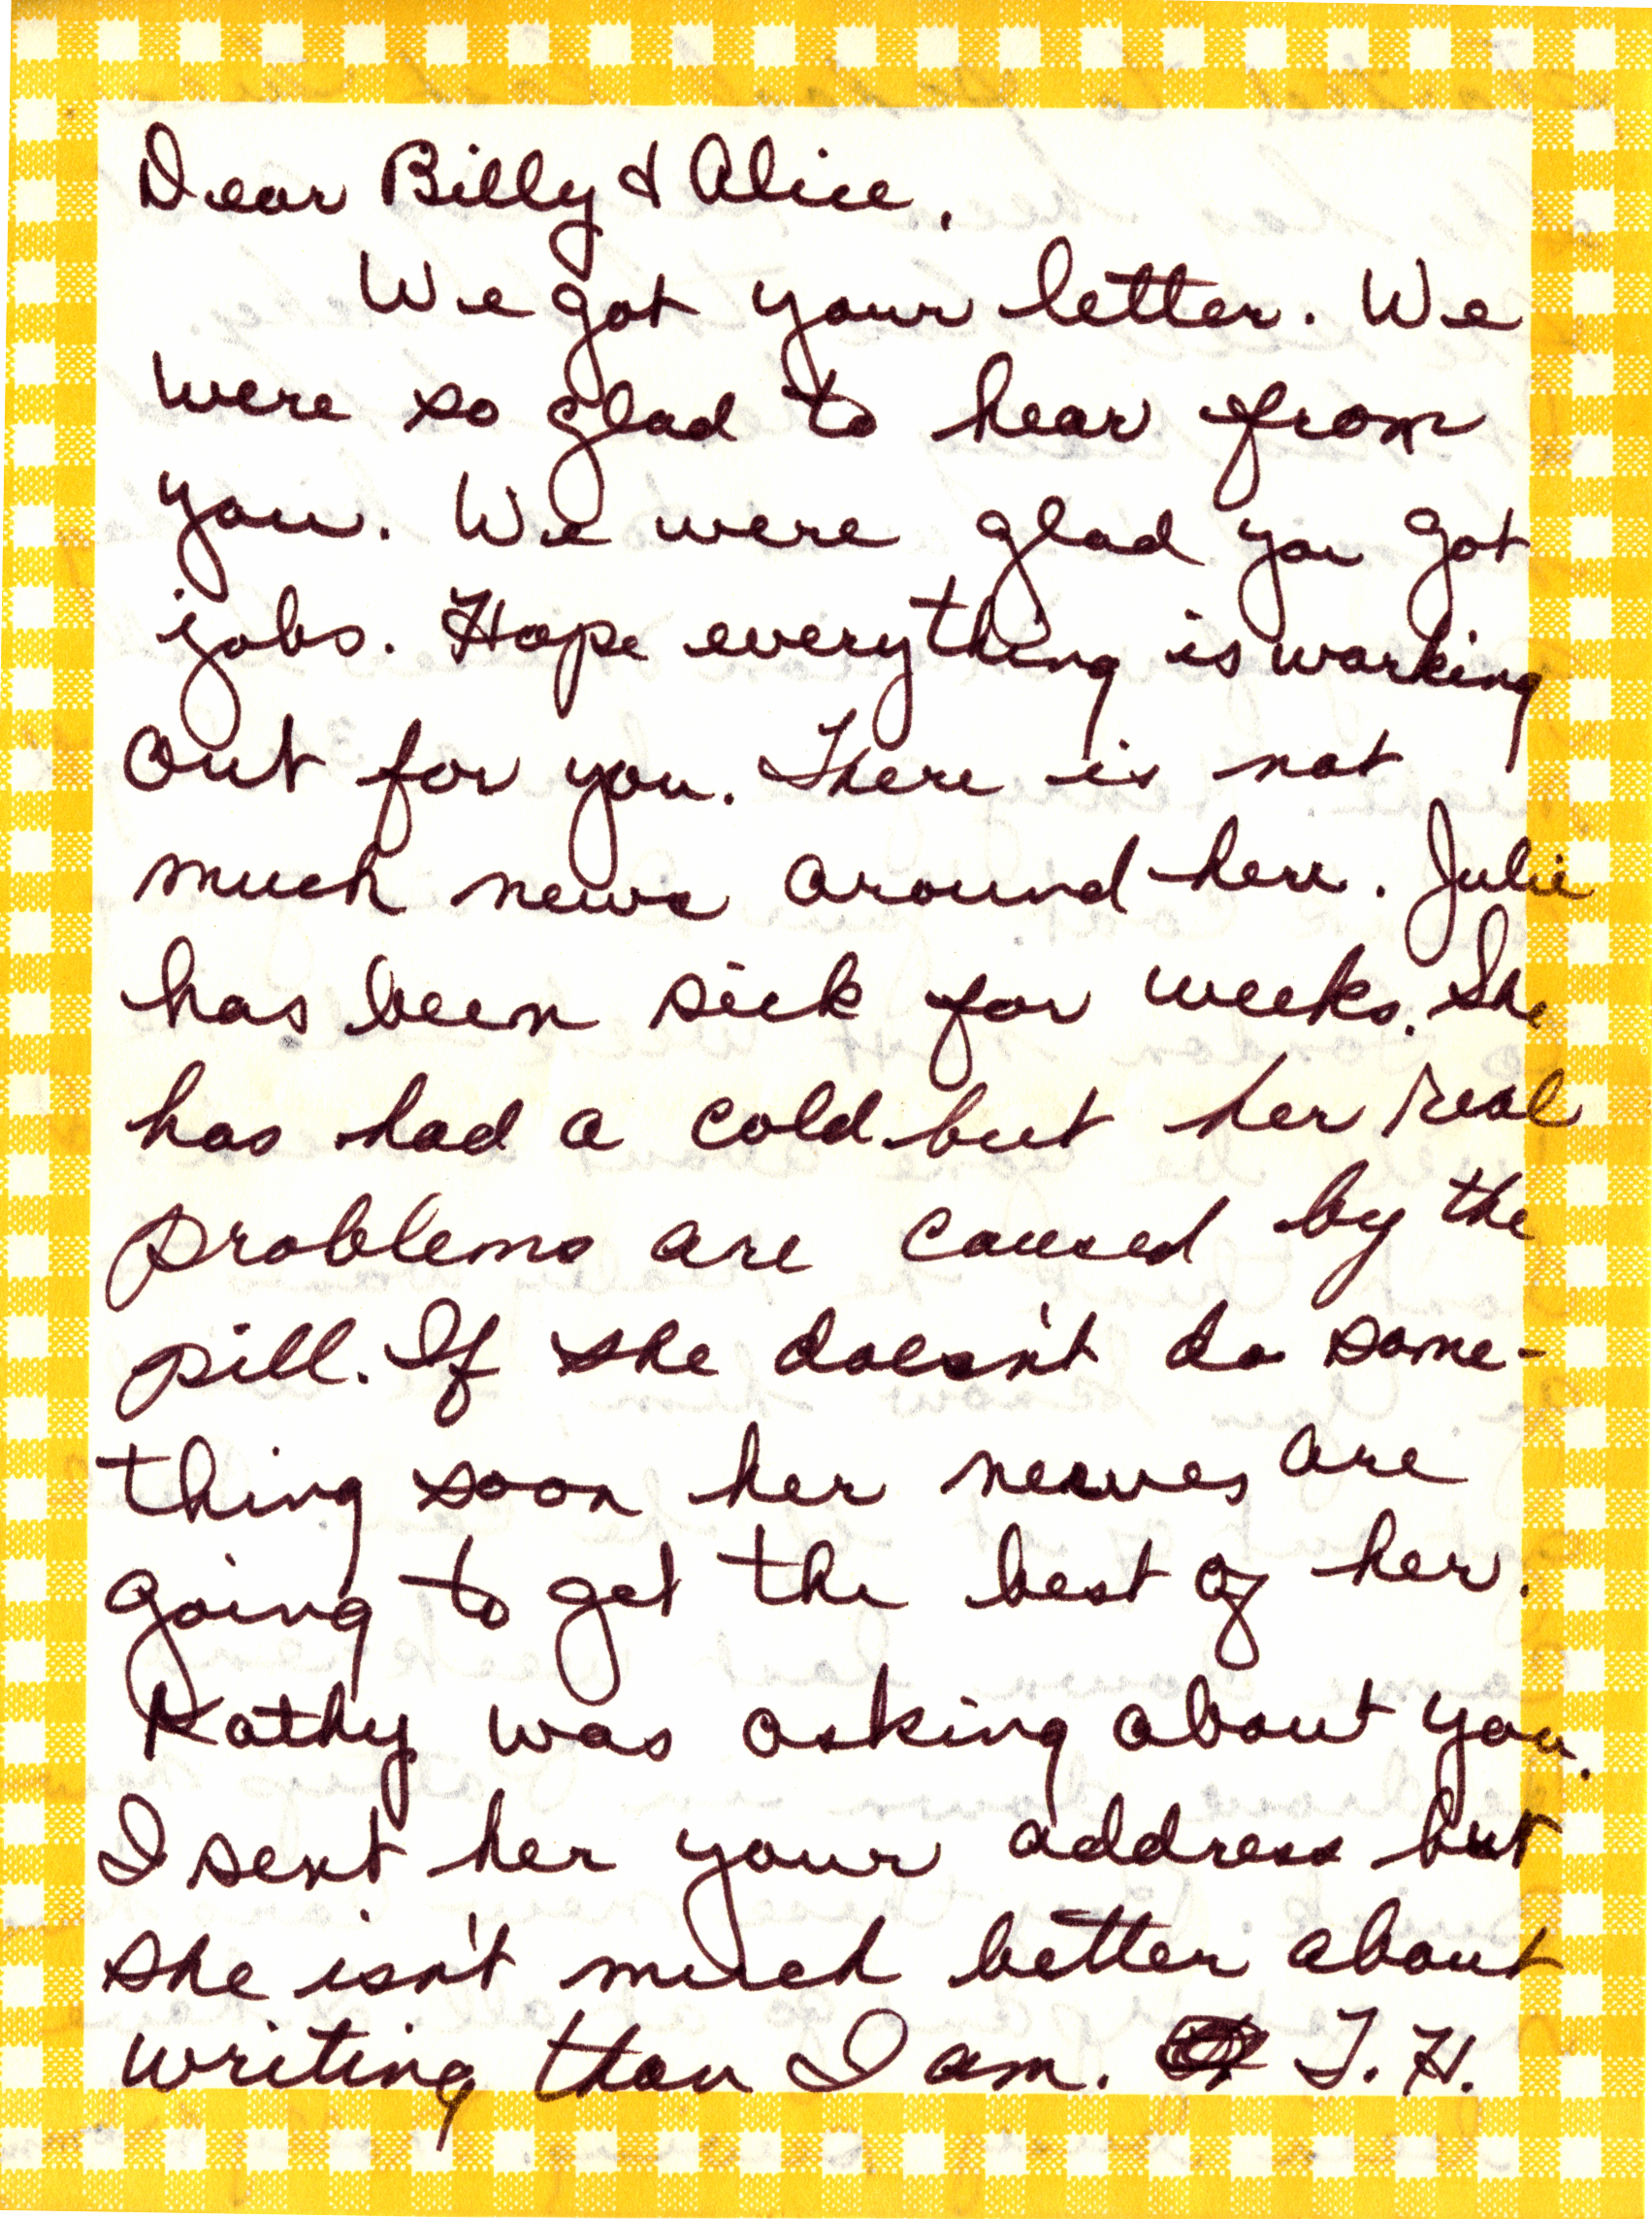 Dear Billy & Alice,
We got your letter. We
were so glad to hear from
you. We were glad you got
jobs. Hope everything is working
out for you. There is not
much news around here. Julie
has been sick for weeks. She
has had a cold but her real
problems are caused by the
pill. If she doesn't do some-
thing soon her nerves are
going to get the best of her.
Kathy was asking about you.
I sent her your address but
she isn't much better about
writing than I am. T. H.